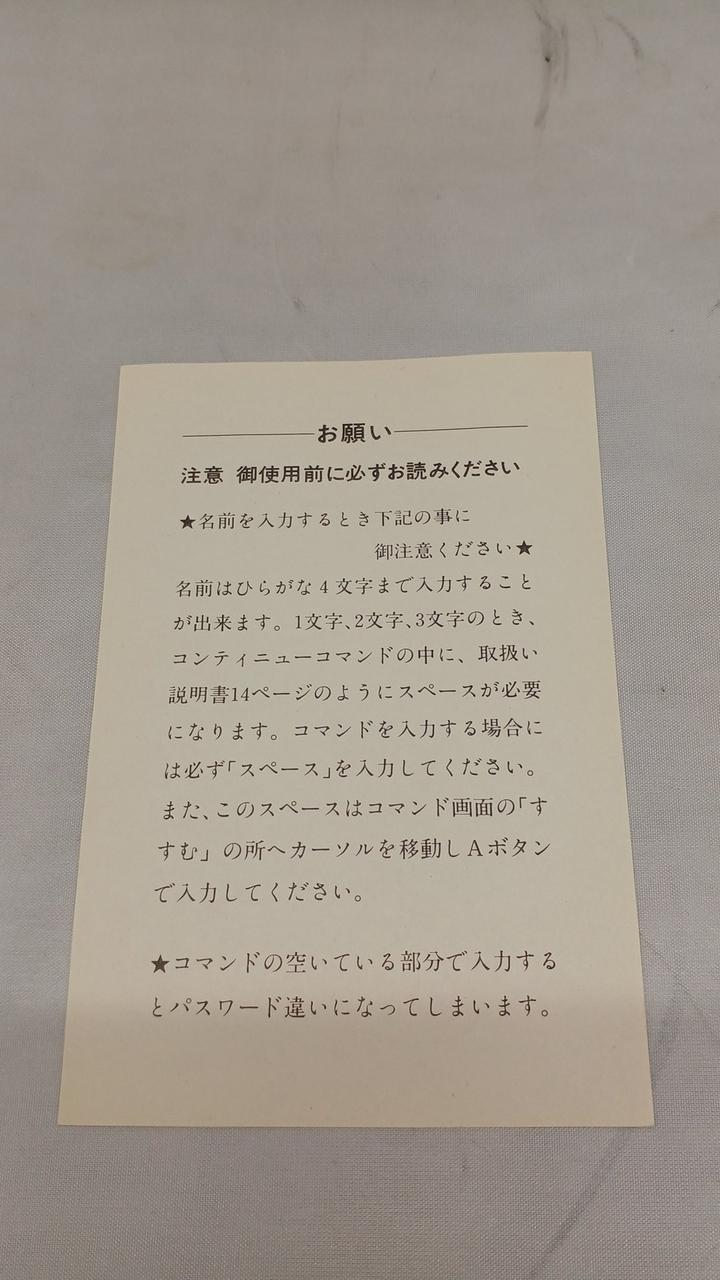 お願い
注意 御使用前に必ずお読みください
★名前を入力するとき下記の事に
御注意ください★
名前はひらがな4文字まで入力すること
が出来ます。1文字、2文字、3文字のとき、
コンティニューコマンドの中に、取扱い
説明書14ページのようにスペースが必要
になります。コマンドを入力する場合に
は必ず「スペース」を入力してください。
また、このスペースはコマンド画面の「す
すむ」の所へカーソルを移動しAボタン
で入力してください。
★コマンドの空いている部分で入力する
とパスワード違いになってしまいます。